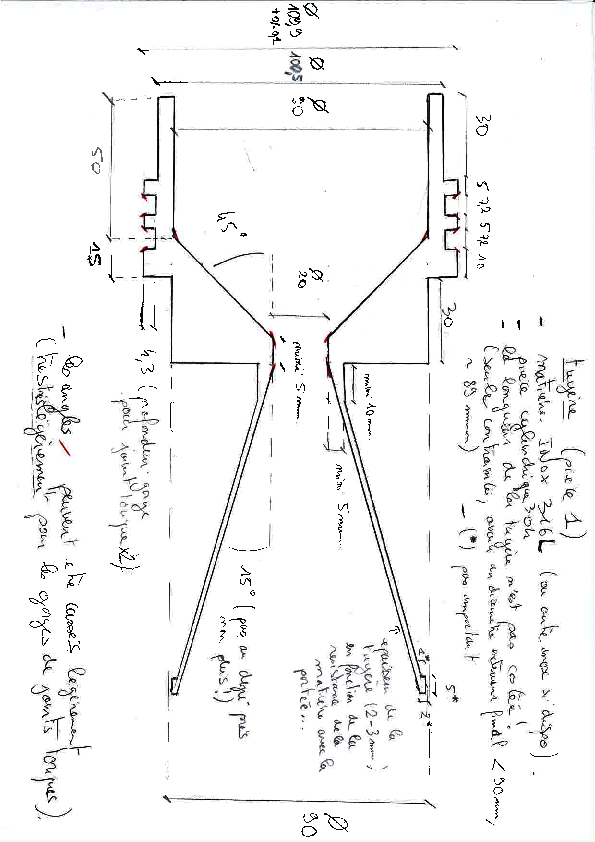 Tuyère (pièce 1)
- matière INOX 316L (ou autre inox si dispo).
- pièce cylindrique 304
- la longueur de la tuyère n'est pas cotée !
(seule contrainte, avoir un diamètre extérieur final < 90mm,
~ 89 mm)
- (*) pas important
Ø 109,9
+0/-0,2
Ø 100,5
Ø 90
50
15
30
5
7,2
5
7,2
10
30
45°
Ø 20
mini 5 mm
mini 10 mm
mini 5 mm
4,3 (profondeur gorge
pour joint torique x2)
15° (pas au degré près
non plus !)
épaisseur de la
tuyère (2-3 mm,
en fonction de la
résistance de la
matière avec la
portée...
2*
5*
2*
Ø 90
- les angles peuvent être cassés légèrement
(très légèrement pour les gorges de joints toriques).